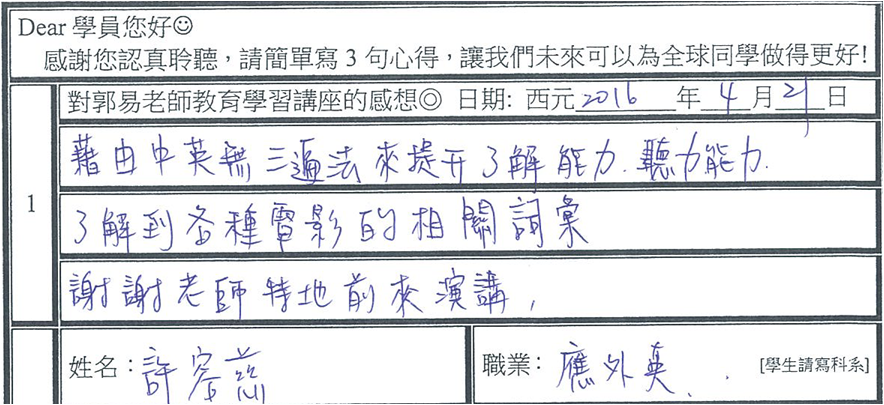 Dear 學員您好☺
感謝您認真聆聽，請簡單寫 3 句心得，讓我們未來可以為全球同學做得更好!
1
對郭易老師教育學習講座的感想◎ 日期: 西元2016年4月21日
藉由中英無三遍法來提升了解能力.聽力能力.
了解到各種電影的相關詞彙
謝謝老師特地前來演講,
姓名：許容慈 職業：應外英.. [學生請寫科系]